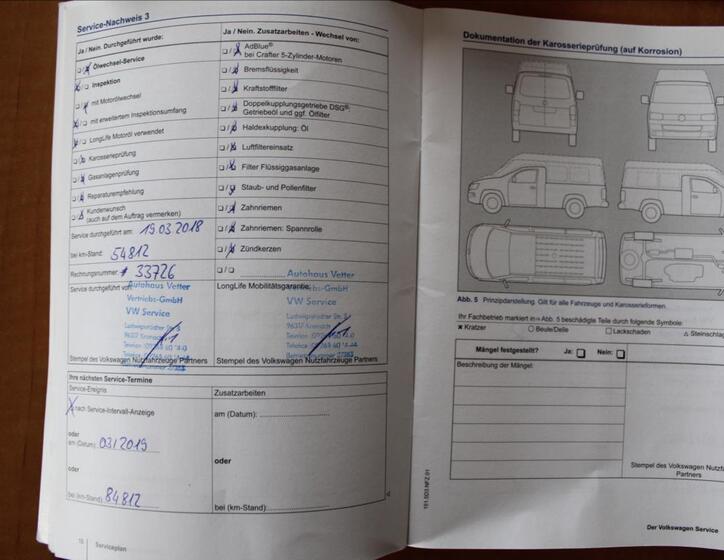 Service-Nachweis 3
Ja / Nein. Durchgeführt wurde:
Ölwechsel-Service
Inspektion
mit Motorölwechsel
mit erweitertem Inspektionsumfang
LongLife Motoröl verwendet
Karosserieprüfung
Gasanlagenprüfung
Reparaturempfehlung
Kundenwunsch
(auch auf dem Auftrag vermerken)
Service durchgeführt am: 19.03.2018
bei km-Stand: 54812
Rechnungsnummer: # 33726
Service durchgeführt von:
Autohaus Vetter
Vertriebs-GmbH
VW Service
Stempel des Volkswagen Nutzfahrzeuge Partners
Ja / Nein. Zusatzarbeiten - Wechsel von:
AdBlue®
bei Crafter 5-Zylinder-Motoren
Bremsflüssigkeit
Kraftstofffilter
Doppelkupplungsgetriebe DSG®:
Getriebeöl und ggf. Ölfilter
Haldexkupplung: Öl
Luftfiltereinsatz
Filter Flüssiggasanlage
Staub- und Pollenfilter
Zahnriemen
Zahnriemen: Spannrolle
Zündkerzen
LongLife Mobilitätsgarantie:
Autohaus Vetter
Vertriebs-GmbH
VW Service
Stempel des Volkswagen Nutzfahrzeuge Partners
Ihre nächsten Service-Termine
Service-Ereignis
nach Service-Intervall-Anzeige
oder
am (Datum): 03/2019
oder
bei (km-Stand): 84812
Zusatzarbeiten
am (Datum):
oder
bei (km-Stand):
Serviceplan
Dokumentation der Karosserieprüfung (auf Korrosion)
Abb. 5 Prinzipdarstellung. Gilt für alle Fahrzeuge und Karosserieformen.
Ihr Fachbetrieb markiert in ⇒ Abb. 5 beschädigte Teile durch folgende Symbole:
× Kratzer ○ Beule/Delle □ Lackschaden △ Steinschlag
Mängel festgestellt? Ja: □ Nein: □
Beschreibung der Mängel:
Stempel des Volkswagen Nutzf
Partners
Der Volkswagen Service